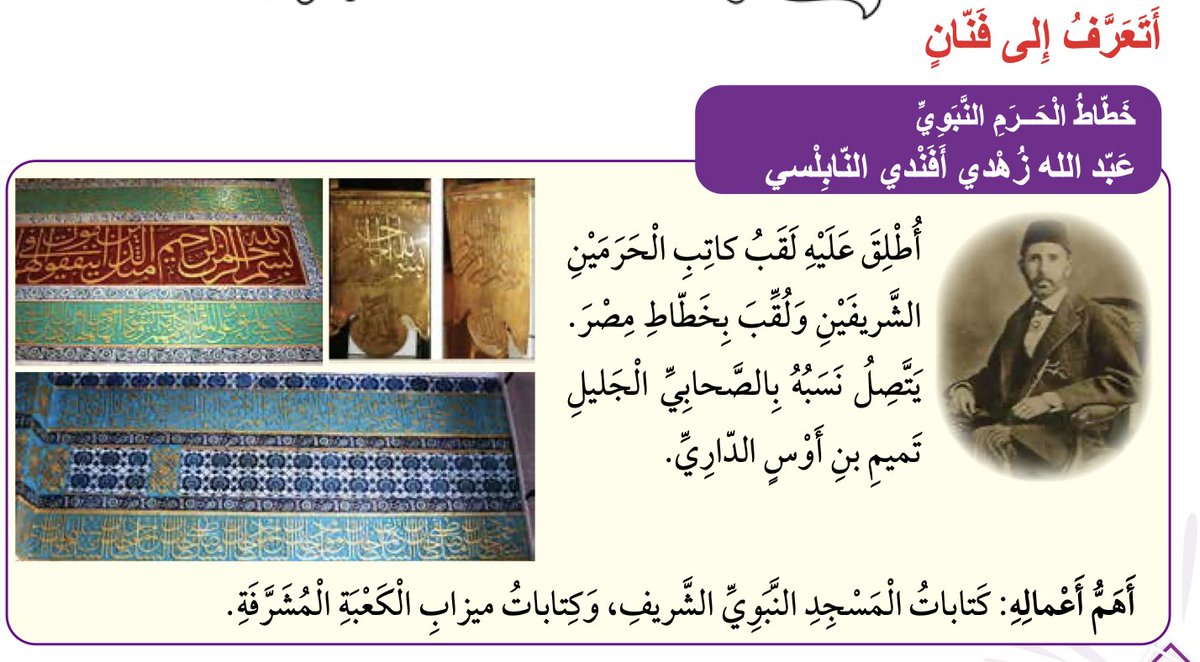 أَتَعَرَّفُ إِلى فَنّانٍ
خَطّاطُ الْحَـــرَمِ النَّبَوِيِّ
عَبّد الله زُهْدي أَفَنْدي النّابِلْسي
أُطْلِقَ عَلَيْهِ لَقَبُ كاتِبِ الْحَرَمَيْنِ
الشَّريفَيْنِ وَلُقِّبَ بِخَطّاطِ مِصْرَ.
يَتَّصِلُ نَسَبُهُ بِالصَّحابِيِّ الْجَليلِ
تَميمِ بنِ أَوْسٍ الدّارِيِّ.
بسم الله الرحمن الرحيم
أَهَمُّ أَعْمالِهِ: كَتاباتُ الْمَسْجِدِ النَّبَوِيِّ الشَّريفِ، وَكِتاباتُ ميزابِ الْكَعْبَةِ الْمُشَرَّفَةِ.